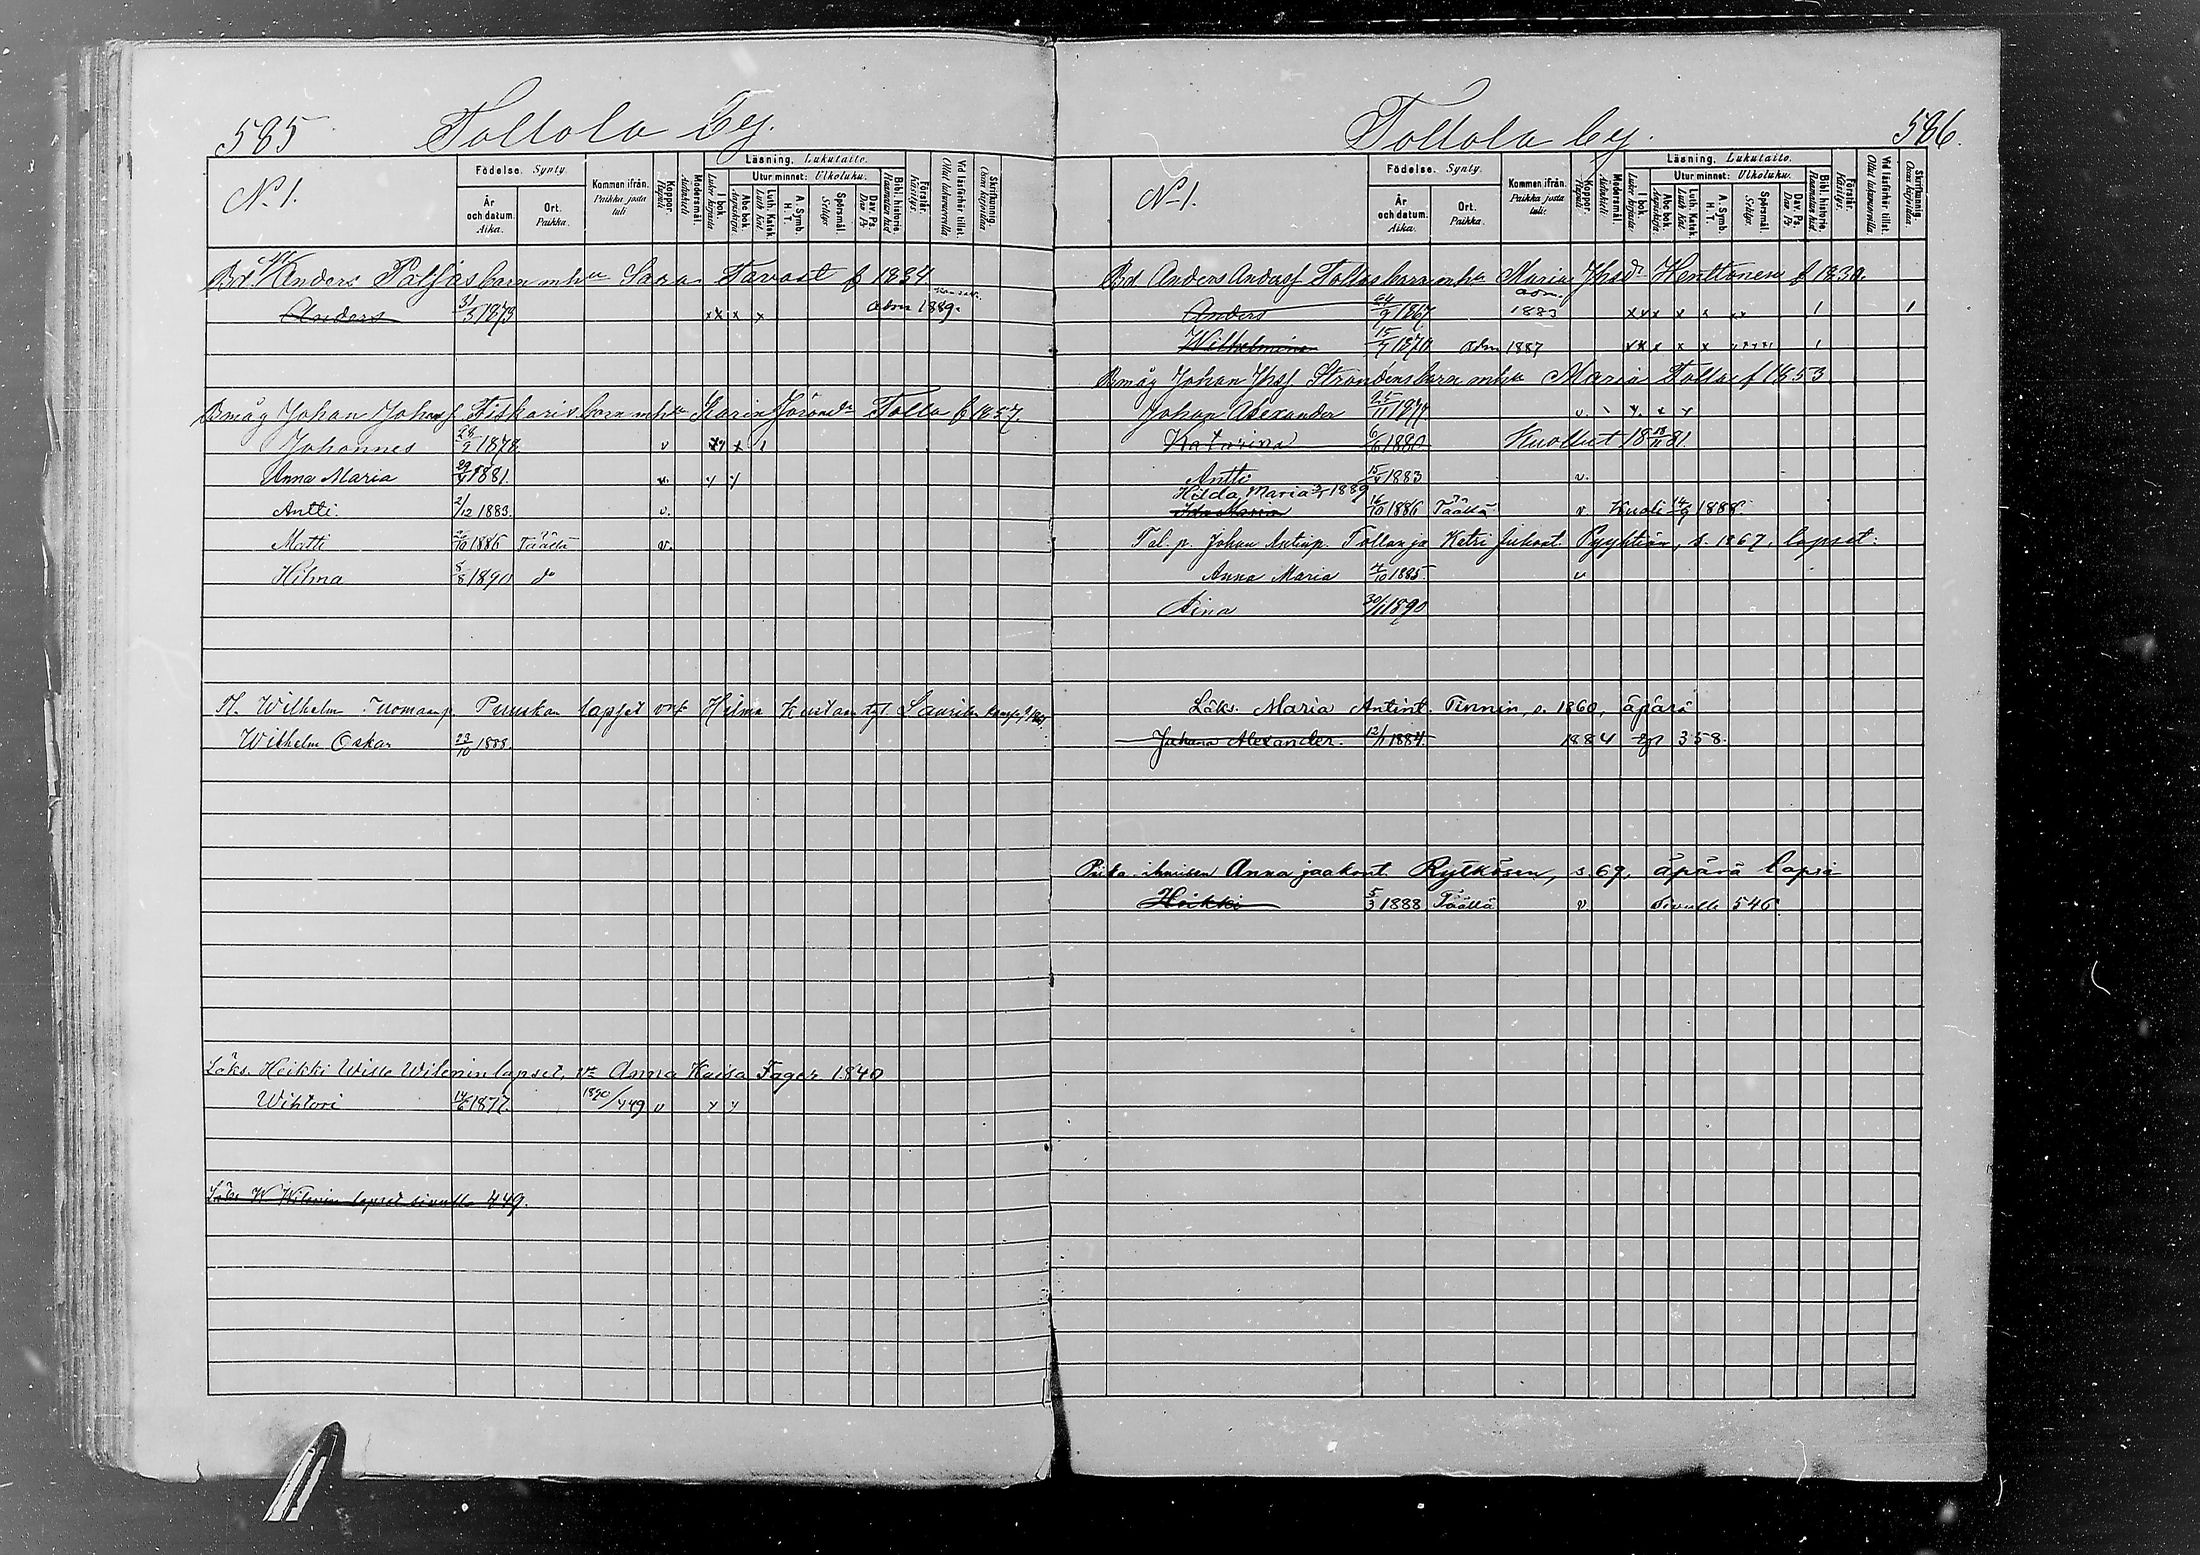 585 Tollola by.
N 1.
Födelse. Synty.
År och datum. Aika.
Ort. Paikka.
Kommen ifrån. Paikka josta tuli
Koppor. Rupuli
Modersmål. Äidinkieli
Läsning. Lukutaito.
I bok. Luku kirjasta
Utur minnet: Ulkoluku.
Abc bok. Aapiskirja.
Luth. Katek. Luth. Kat.
A. Symb. H. T.
Spörsmål. Selitys
Dav. Ps. Dav. Ps
Bibl. historie. Raamatun hist
Förstår. Käsitys.
Vid läsförhör tillst. Ollut lukuseuroilla
Skriftkunnig. Osaa kirjoittaa
Bd Anders Pålss barn m. hu Sara Tavast f 1834
Anders 31/5 1873 x x x x adm 1889.
Bmåg Johan Johansf Fiskaris barn m. hu Karin Göransdr Tolla f 1857.
Johannes 28/9 1878 v
Anna Maria 29/4 1881. v.
Antti. 2/12 1883. v.
Matti 2/10 1886 Täällä v.
Hilma 8/8 1890 do
It. Wilhelm Tuomaanp. Puuskan lapset vmk Hilma Kustaantyt. Laurik
Wilhelm Oskar 23/10 1888
Läks. Heikki Wille Wilenin lapset, vk Anna Kaisa Fager 1840
Wihtori 14/6 1877. 1890/449 v
Läks W Wilenin lapset sivulla 449.
Tollola by. 586.
N 1.
Födelse. Synty.
År och datum. Aika.
Ort. Paikka.
Kommen ifrån. Paikka josta tuli.
Koppor. Rupuli
Modersmål. Äidinkieli
Läsning. Lukutaito.
I bok. Luku kirjasta
Utur minnet: Ulkoluku.
Abc bok. Aapiskirja.
Luth. Katek. Luth. Kat.
A. Symb. H. T.
Spörsmål. Selitys
Dav. Ps. Dav. Ps
Bibl. historie. Raamatun hist
Förstår. Käsitys.
Vid läsförhör tillst. Ollut lukuseuroilla
Skriftkunnig. Osaa kirjoittaa.
Bd Anders Andersf Tollas barn m. hu Maria Jhsdr Henttonen f 1830.
Anders 24/9 1867 adm. 1883
Wilhelmina 15/7 1870 adm 1887
Bmåg Johan Jhsf Strandens barn m. hu Maria Tolla f 1853
Johan Alexander 25/11 1877 v.
Katarina 6/6 1880 Kuollut 18 13/11 81.
Antti 15/4 1883 v.
Hilda Maria 1889
Ida Maria 16/10 1886 Täällä v. Kuoli 14/9 1888.
Tal. p. Johan Antinp. Tollan ja Katri Juhont. Pyyhtiän, s. 1867, lapset:
Anna Maria 4/10 1885 v
Aina 30/1 1890
Läks. Maria Antint. Tinnin, s. 1860, äpärä
Juhana Alexander. 12/1 1884. 1884 358.
Piika-ihmisen Anna Jaakont. Rytkösen, s. 69. äpärä lapsi
Heikki 5/3 1888 Täällä v. sivulle 546.